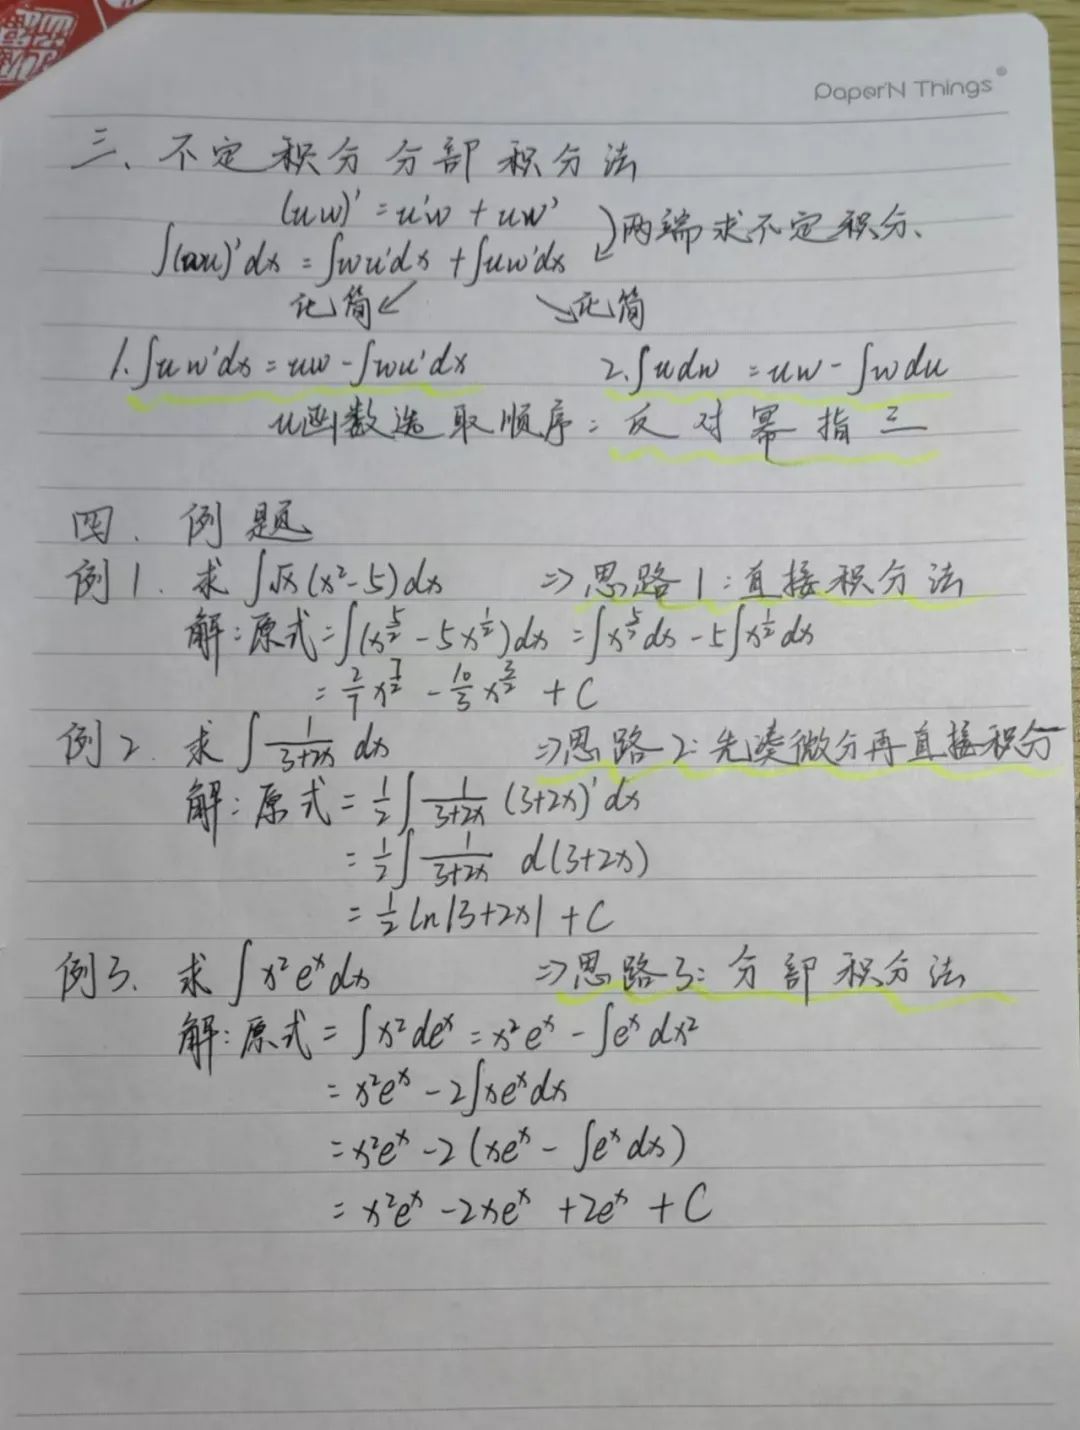 PaperN Things®
三、不定积分分部积分法
(uw)' = u'w + uw'
两端求不定积分、
∫(wu)'dx = ∫wu'dx + ∫uw'dx
化简 化简
1.∫uw'dx = uw - ∫wu'dx 2.∫udw = uw - ∫wdu
u函数选取顺序: 反对幂指三
四. 例题
例1. 求∫√x(x²-5)dx ⇒思路1:直接积分法
解:原式=∫(x^{5/2} - 5x^{1/2})dx = ∫x^{5/2}dx - 5∫x^{1/2}dx
= 2/7 x^{7/2} - 10/3 x^{3/2} + C
例2. 求∫ 1/(3+2x) dx ⇒思路2:先凑微分再直接积分
解:原式 = 1/2 ∫ 1/(3+2x) (3+2x)'dx
= 1/2 ∫ 1/(3+2x) d(3+2x)
= 1/2 ln|3+2x| + C
例3. 求∫x²eˣdx ⇒思路3:分部积分法
解:原式 = ∫x²deˣ = x²eˣ - ∫eˣdx²
= x²eˣ - 2∫xeˣdx
= x²eˣ - 2(xeˣ - ∫eˣdx)
= x²eˣ - 2xeˣ + 2eˣ + C